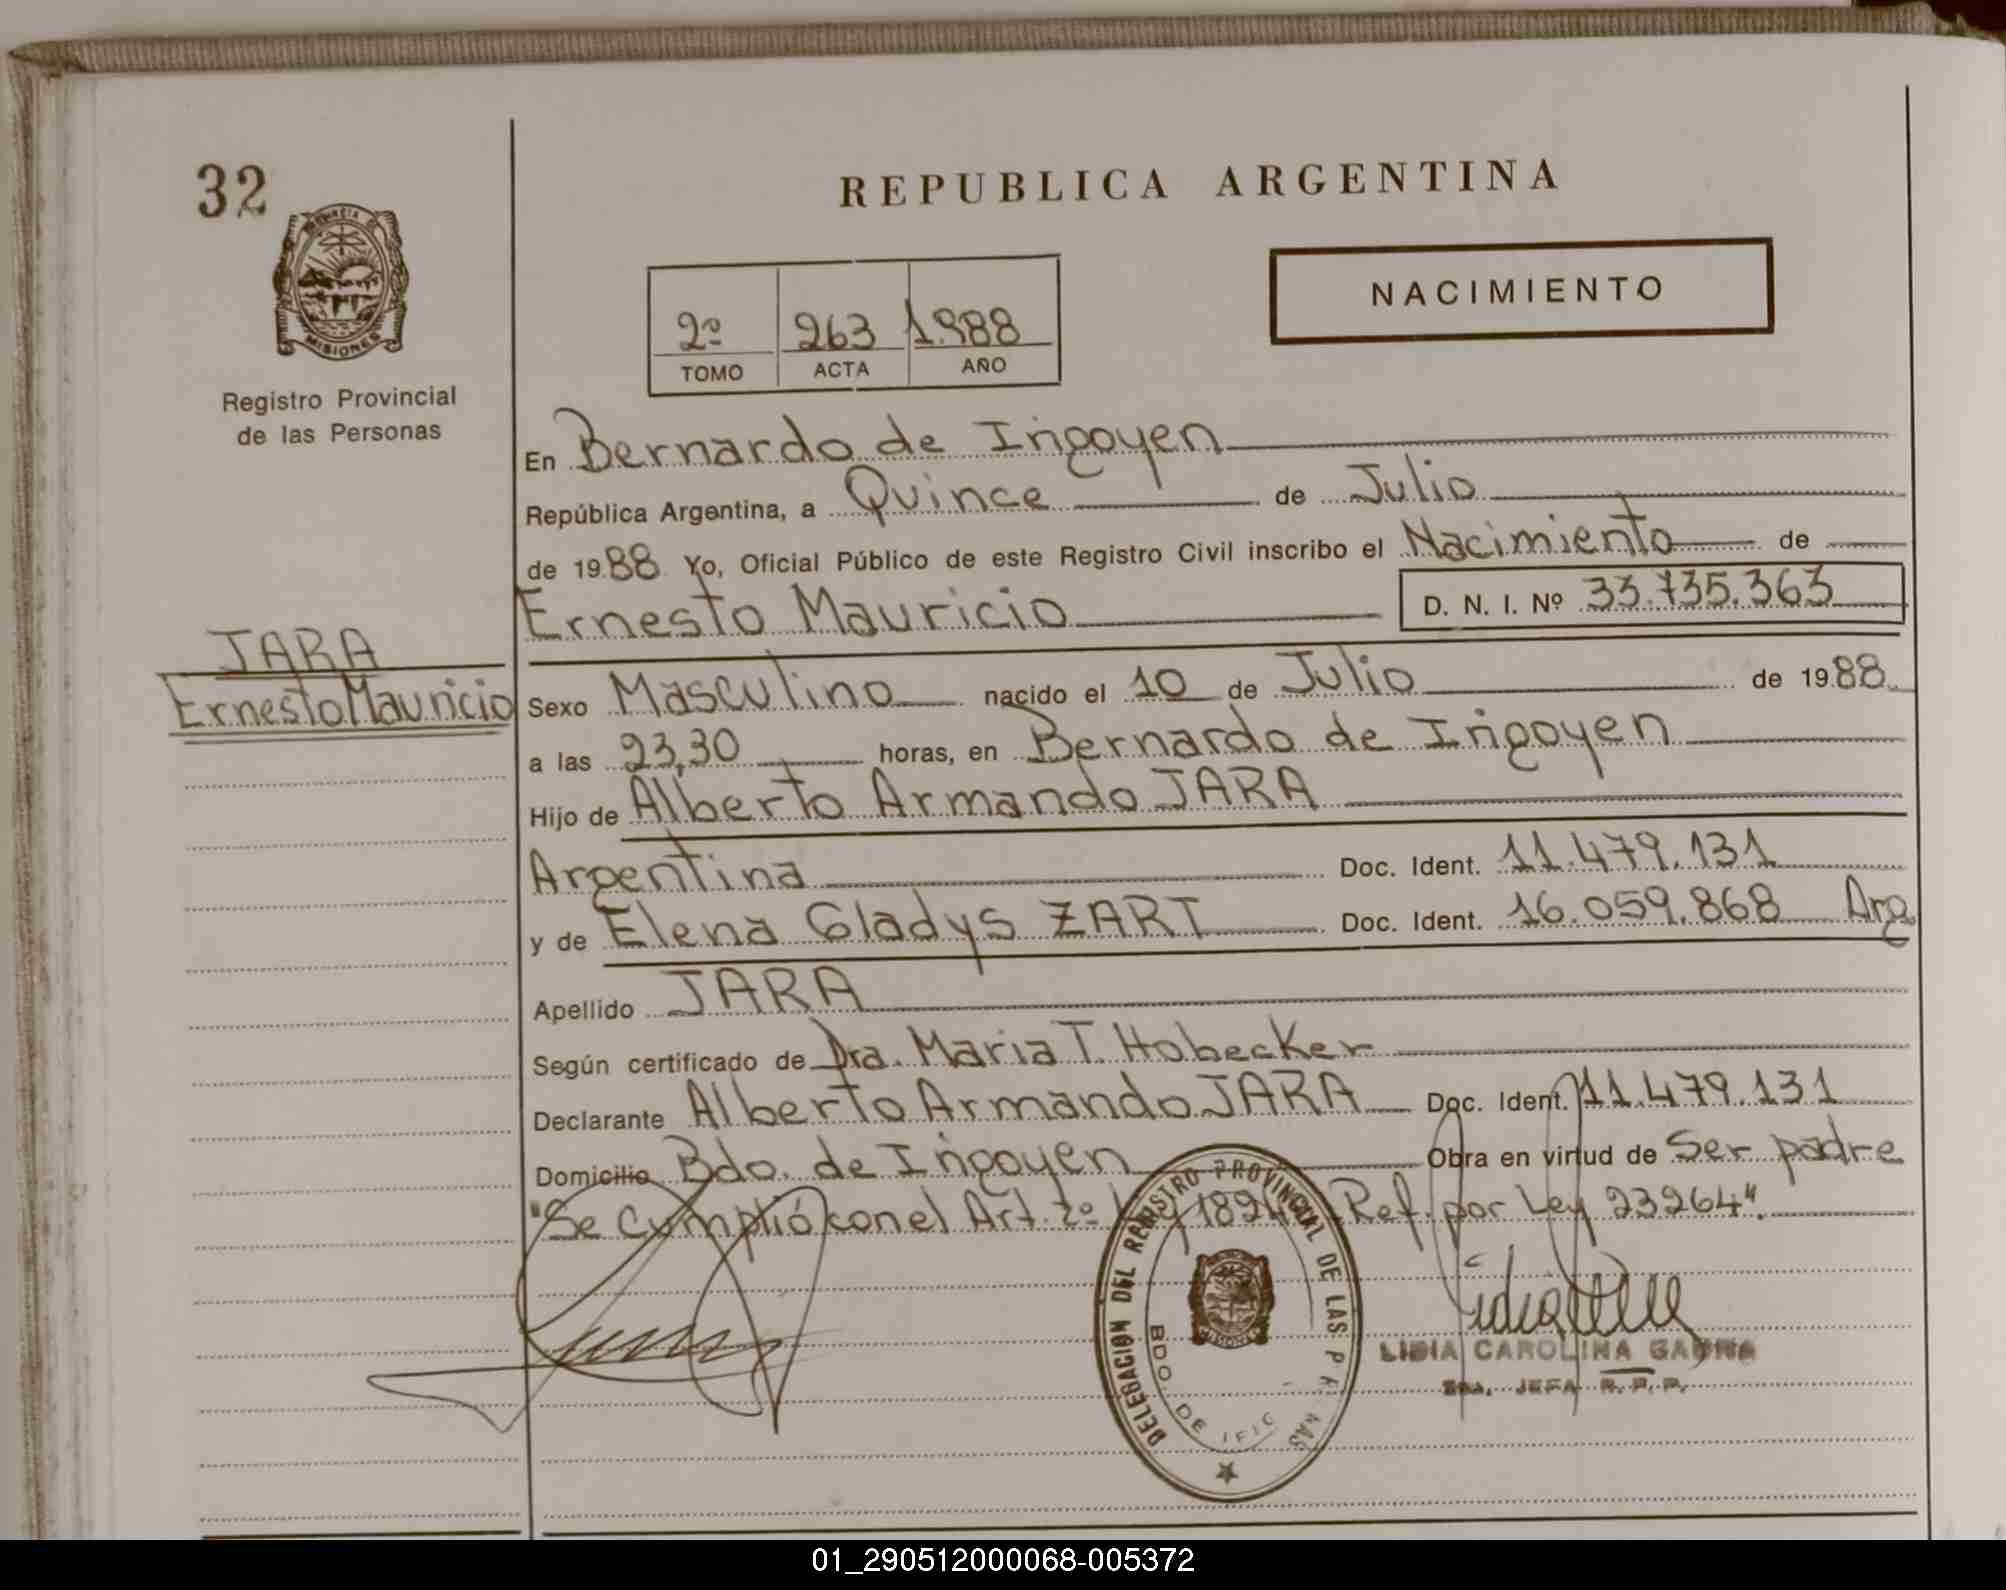 32
REPUBLICA ARGENTINA
NACIMIENTO
2º 263 1.988
TOMO ACTA AÑO
MISIONES
Registro Provincial
de las Personas
JARA
Ernesto Mauricio
En Bernardo de Irigoyen
República Argentina, a Quince de Julio
de 1988 Yo, Oficial Público de este Registro Civil inscribo el Nacimiento de
Ernesto Mauricio D. N. I. Nº 33.735.363
Sexo Masculino nacido el 10 de Julio de 1988
a las 23,30 horas, en Bernardo de Irigoyen
Hijo de Alberto Armando JARA
Argentina Doc. Ident. 11.479.131
y de Elena Gladys ZART Doc. Ident. 16.059.868 Arg.
Apellido JARA
Según certificado de Dra. Maria T. Hobecker
Declarante Alberto Armando JARA Doc. Ident. 11.479.131
Domicilio Bdo. de Irigoyen Obra en virtud de Ser padre
"Se Cumplió con el Art. 2º Ley 1894 Ref. por Ley 23264".
DELEGACION DEL REGISTRO PROVINCIAL DE LAS
BDO. DE
LIDIA CAROLINA GAUNA
JEFA R. P. P.
01_290512000068-005372